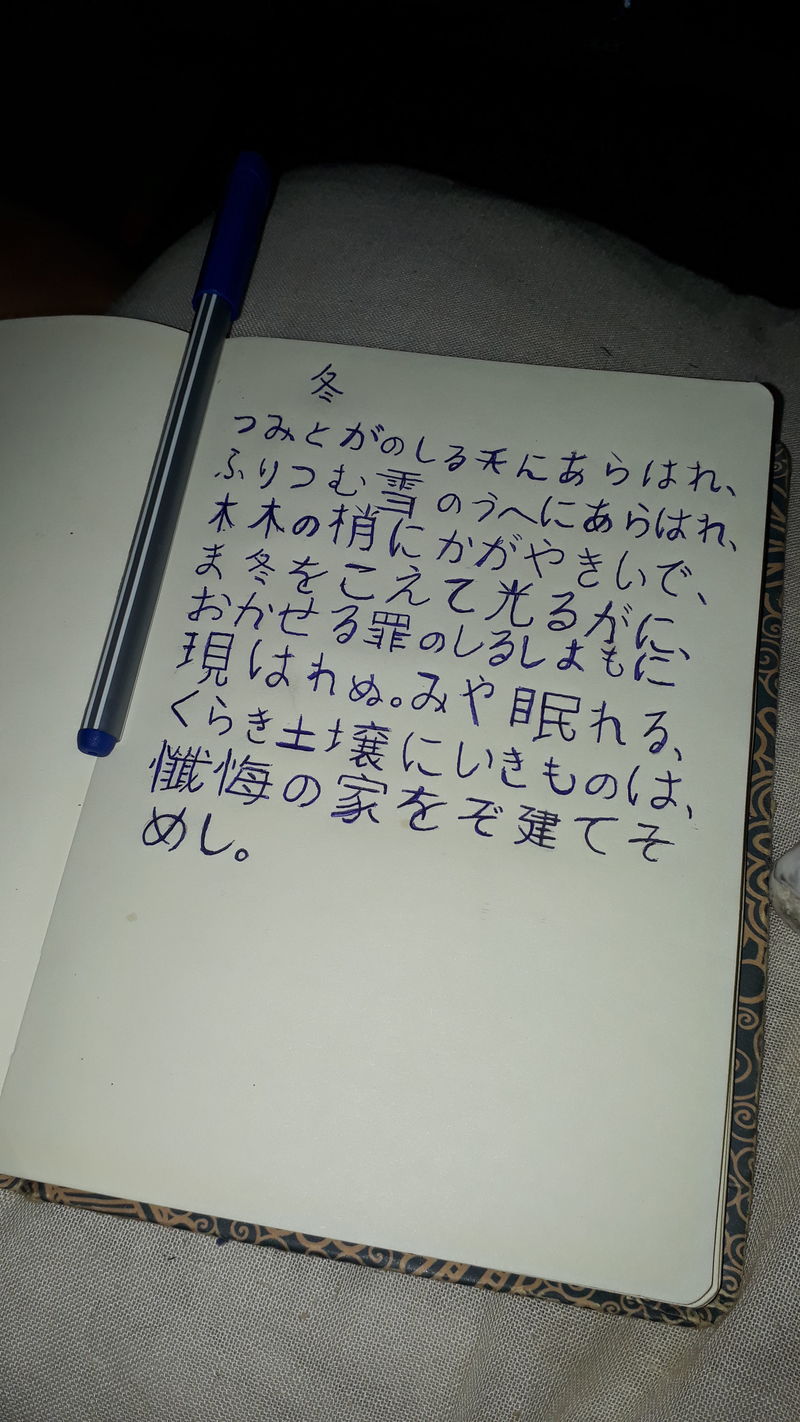 冬
つみとがのしる天にあらはれ、
ふりつむ雪のうへにあらはれ、
木木の梢にかがやきいで、
ま冬をこえて光るがに、
おかせる罪のしるしよもに
現はれぬ。みや眠れる、
くらき土壌にいきものは、
懺悔の家をぞ建てそ
めし。